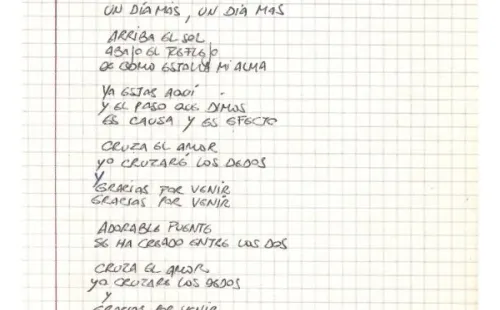 UN DÍA MÁS, UN DÍA MAS
ARRIBA EL SOL
ABAJO EL REFLEJO
DE COMO ESTALLA MI ALMA
YA ESTAS AQUÍ
Y EL PASO QUE DIMOS
ES CAUSA Y ES EFECTO
CRUZA EL AMOR
YO CRUZARÉ LOS DEDOS
Y
GRACIAS POR VENIR
GRACIAS POR VENIR
ADORABLE PUENTE
SE HA CREADO ENTRE LOS DOS
CRUZA EL AMOR
YO CRUZARE LOS DEDOS
Y
GRACIAS POR VENIR